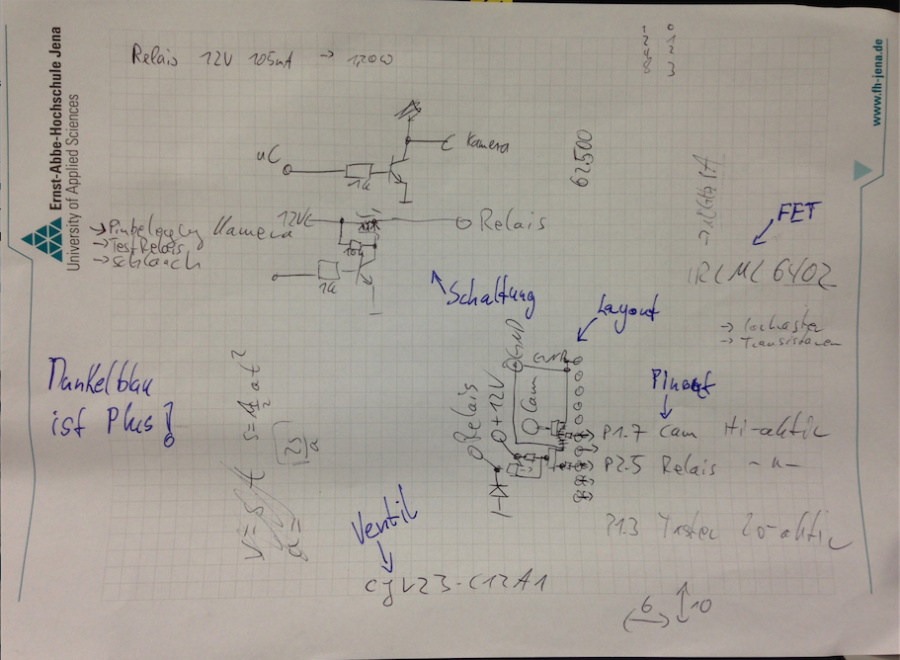 Ernst-Abbe-Hochschule Jena
University of Applied Sciences
www.fh-jena.de
Relais 12V 105mA → 1,20W
1 0
2 1
4 2
8 3
uC
1k
Kamera
62.500
12V
Relais
10k
1k
→ Pinbelegung Kamera
→ Test Relais
→ Schlauch
Schaltung
FET
IRLML6402
→ Lochraster
→ Transistoren
Layout
Dunkelblau
ist Plus!
s = 1/2 at²
2s/a
Relais
+12V
Cam
GND
GND
Pinout
P1.7 Cam Hi-aktiv
P2.5 Relais -"-
P1.3 Taster Lo-aktiv
Ventil
CJV23-C12A1
6 10